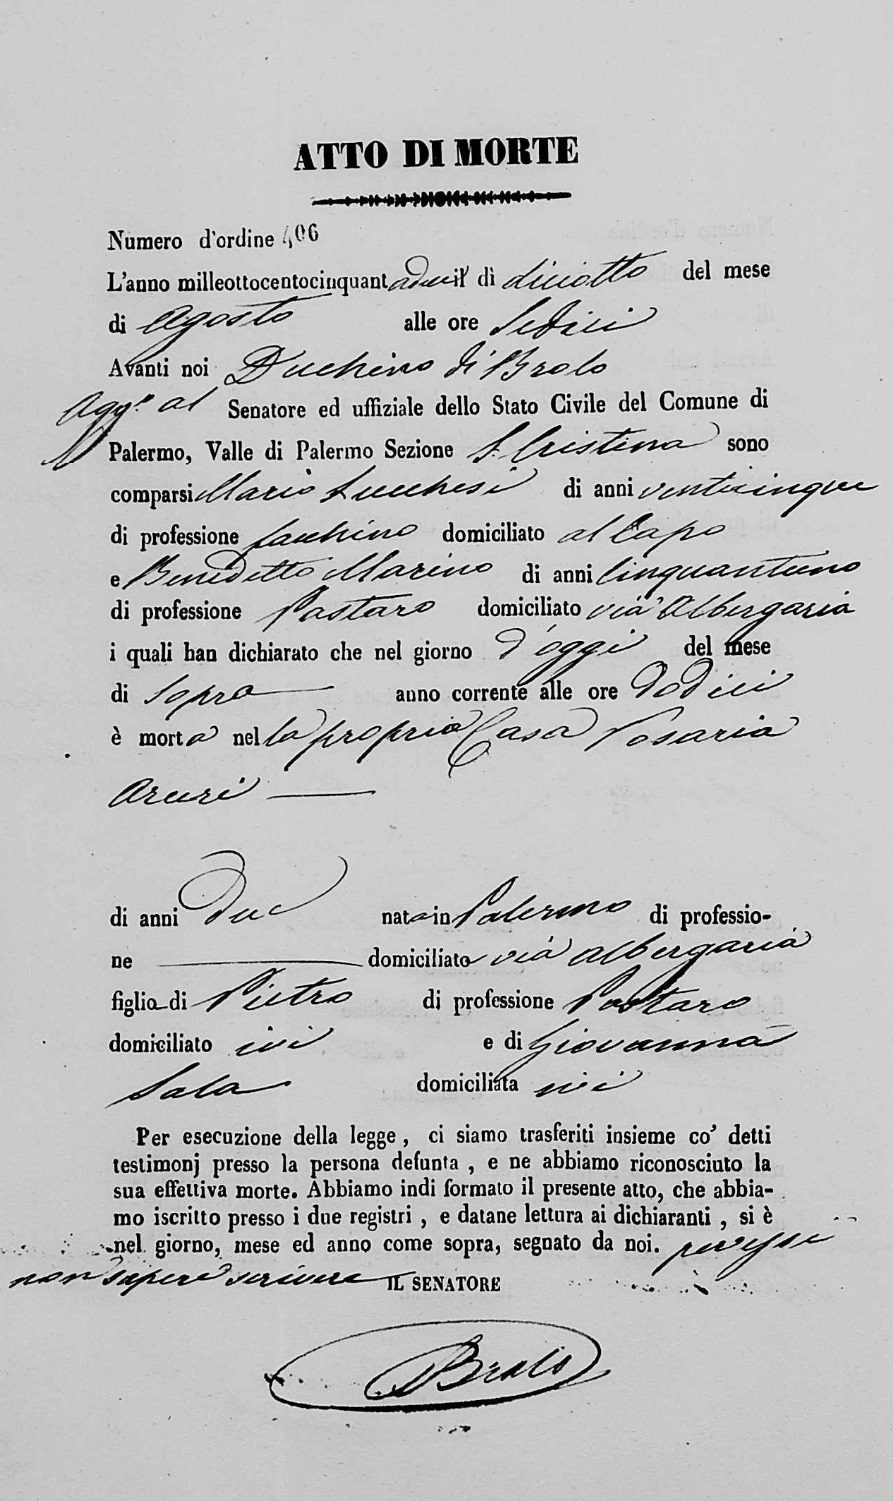 ATTO DI MORTE
Numero d'ordine 406
L'anno milleottocentocinquantadue il dì diciotto del mese
di Agosto alle ore Sedici
Avanti noi Duchino di Brolo
Aggto al Senatore ed uffiziale dello Stato Civile del Comune di
Palermo, Valle di Palermo Sezione S. Cristina sono
comparsi Mario Lucchesi di anni venticinque
di professione facchino domiciliato al Capo
e Benedetto Marino di anni cinquantuno
di professione Pastaro domiciliato via Albergaria
i quali han dichiarato che nel giorno d'oggi del mese
di sopra anno corrente alle ore dodici
è morta nella propria Casa Rosaria
Aruri
di anni due nata in Palermo di professio-
ne domiciliata via Albergaria
figlia di Pietro di professione Pastaro
domiciliato ivi e di Giovanna
Sala domiciliata ivi
Per esecuzione della legge, ci siamo trasferiti insieme co' detti
testimonj presso la persona defunta, e ne abbiamo riconosciuto la
sua effettiva morte. Abbiamo indi formato il presente atto, che abbia-
mo iscritto presso i due registri, e datane lettura ai dichiaranti, si è
nel giorno, mese ed anno come sopra, segnato da noi. per essi
non sapere scrivere
IL SENATORE
Brolo